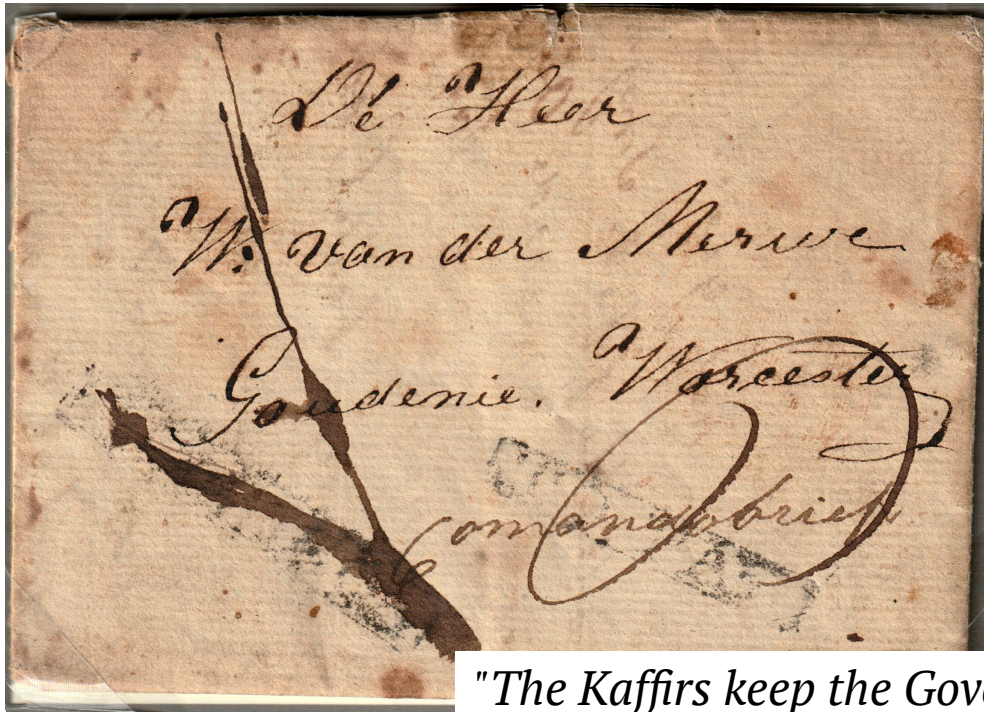 Dé Heer
W. van der Merwe
Goudenie. Worcester
Comandobrief
"The Kaffirs keep the Gov